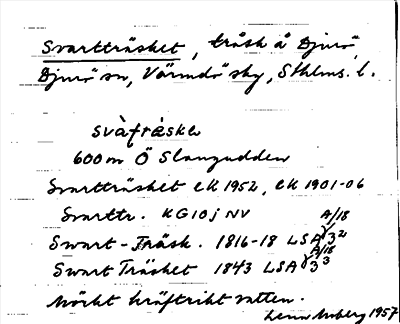 Svartträsket, träsk å Djurö,
Djurö sn, Värmdö sky, Sthlms. l.
svàfrǻska
600 m Ö Slangudden
Svartträsket ek 1952, ek 1901-06
Svarttr. KG10j NV A/18
Swart-Träsk. 1816-18 LSA 3²
Swart Träsket 1843 LSA 3³ A/18
Mörkt kräftrikt vatten.
1957